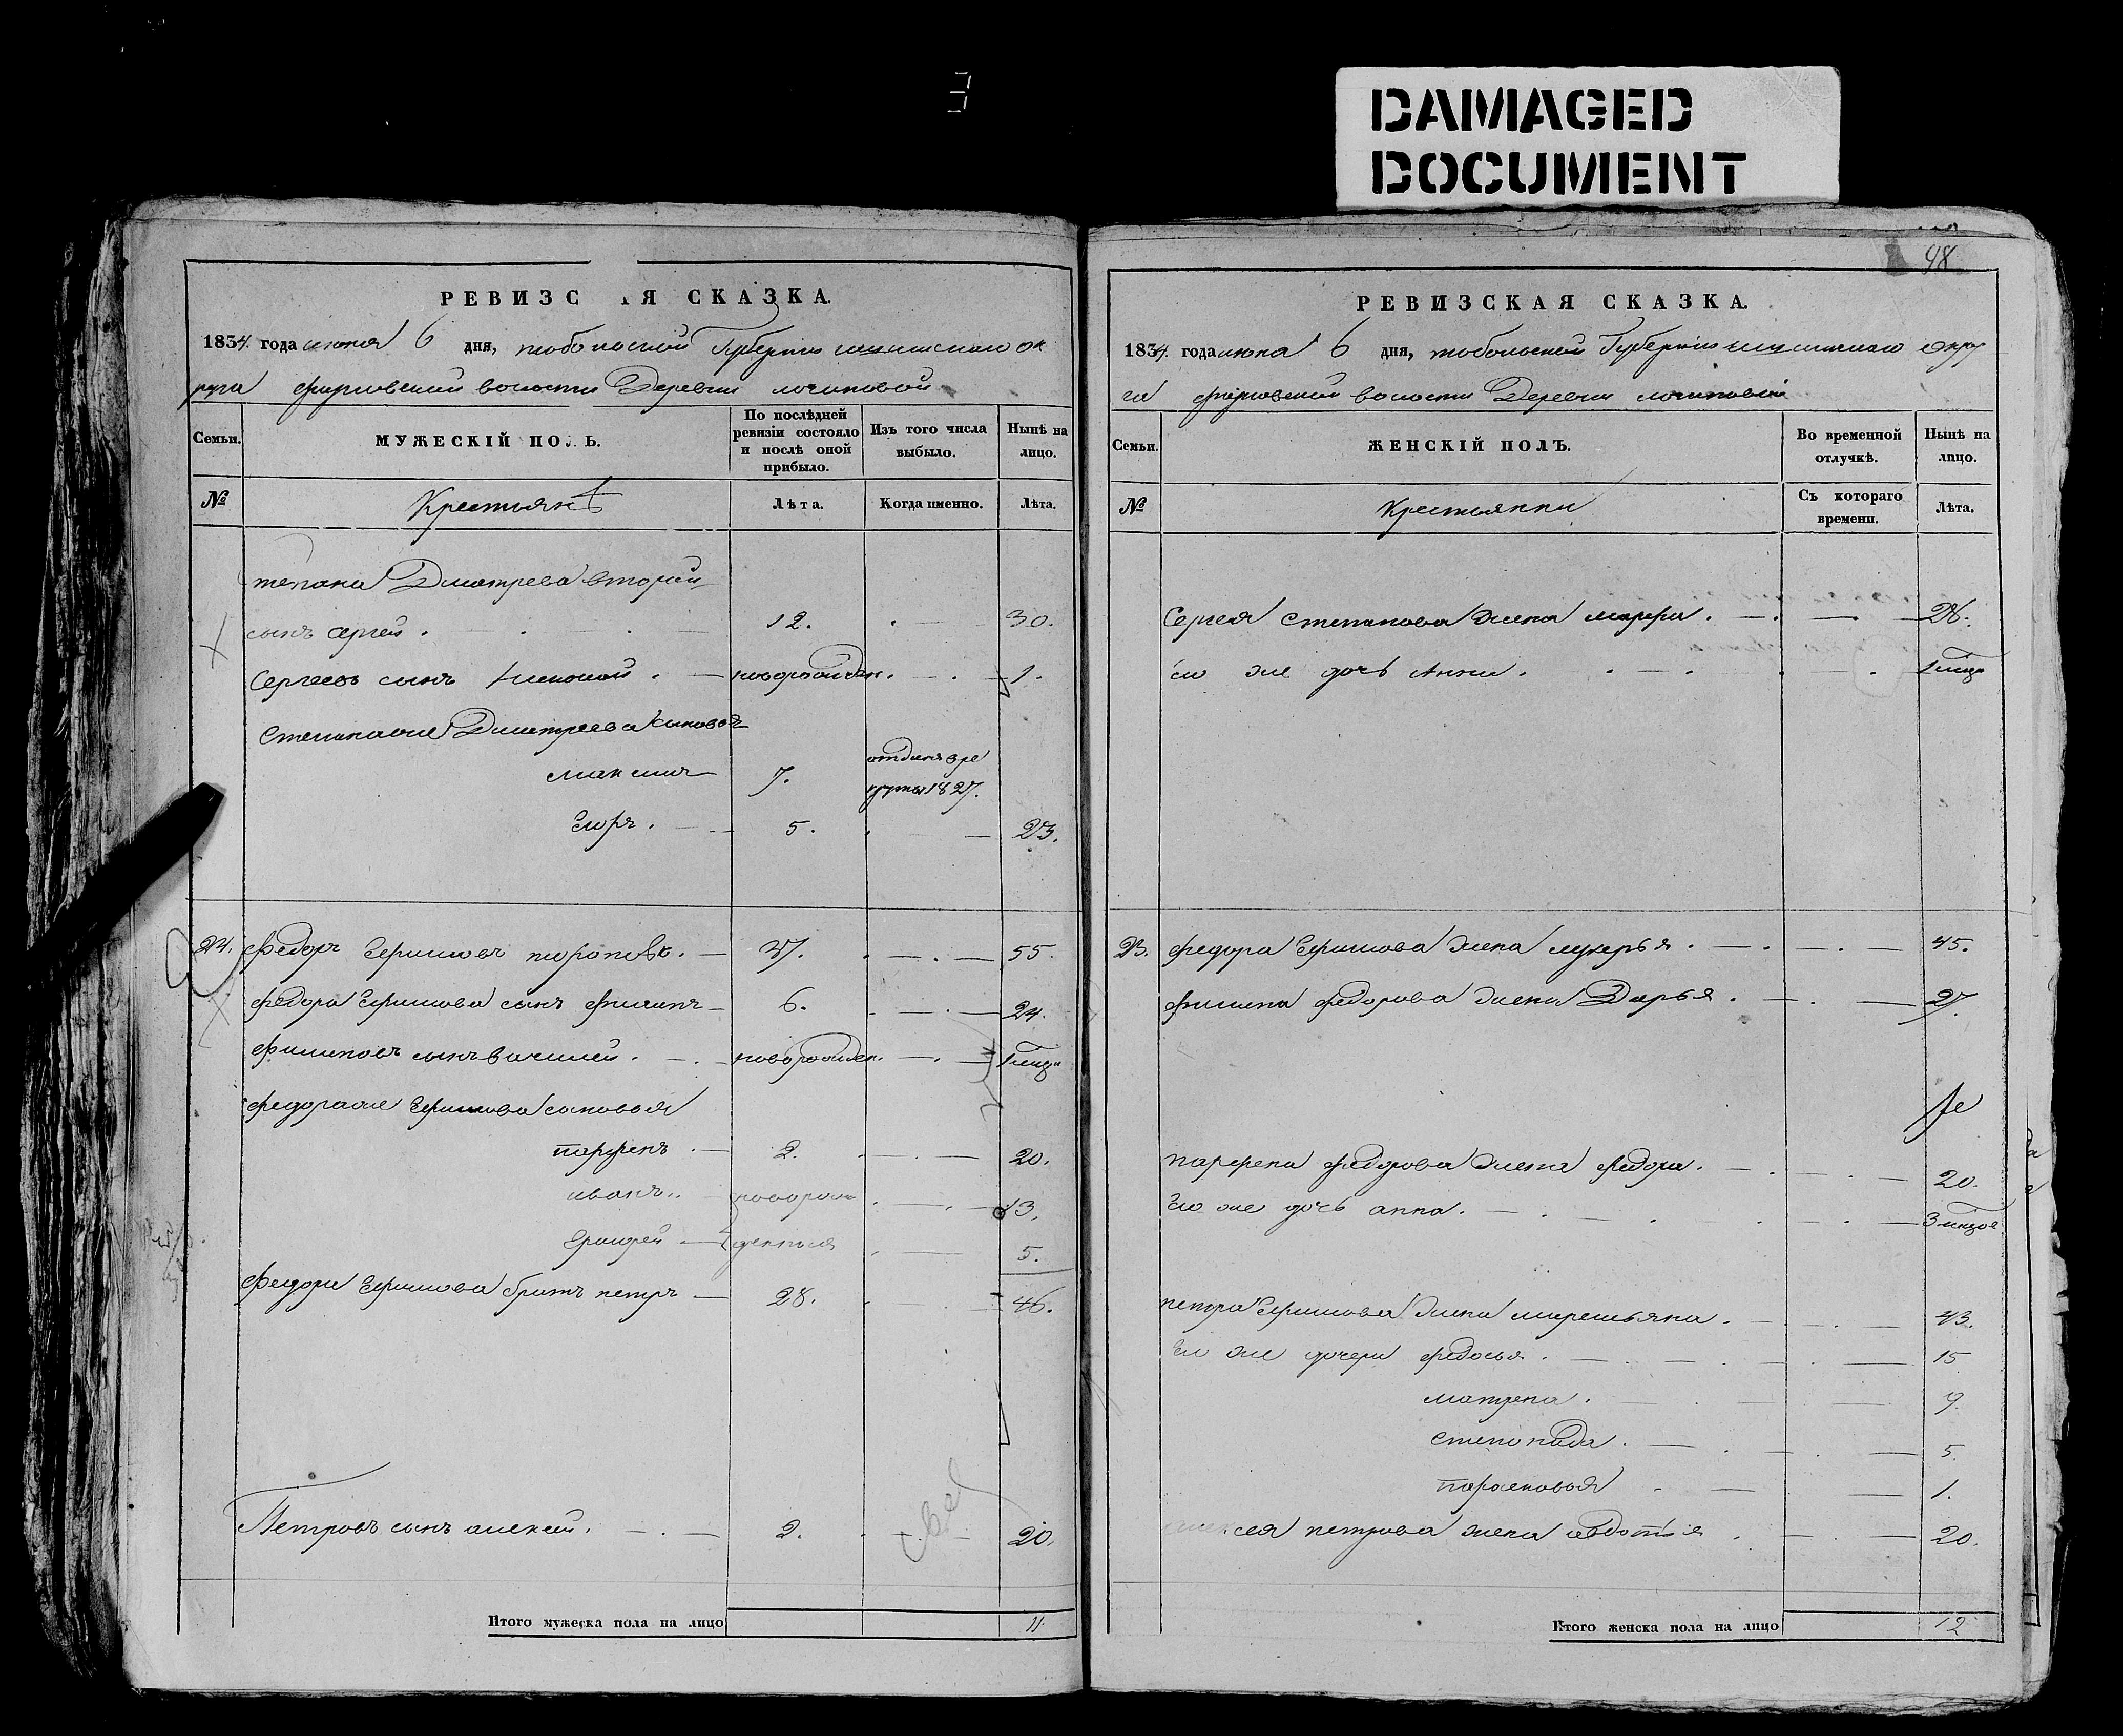 DAMAGED
DOCUMENT
РЕВИЗС АЯ СКАЗКА.
1834. года июня 6 дня, тобольской Губернии ишимскаго ок
руга фирсовской волости Деревни
Семьи.
МУЖЕСКІЙ ПОЛЪ.
По послѣдней ревизіи состояло и послѣ оной прибыло.
Изъ того числа выбыло.
Нынѣ на лицо.
№
Крестьянѣ
Лѣта.
Когда именно.
Лѣта.
тепана Дмитрева вторый
сынъ сергей. 12. 30.
Сергеевъ сынъ Николай. новорожден. 1.
Степанаже Дмитреева сыновья
максимъ 7. отданъ вре
круты 1827.
Егоръ. 5. 23.
24. Федоръ Ефимовъ 37. 55.
федора Ефимова сынъ филипъ 6. 24.
филиповъ сынъ василей. новорожден. 1 мца
федораже Ефимова сыновья
парфенъ. 2. 20.
иванъ. новорож 13.
Ерофей денныя 5.
федора Ефимова братъ петръ 28. 46.
Петровъ сынъ алексей. 2. 20.
Итого мужеска пола на лицо 11.
48
РЕВИЗСКАЯ СКАЗКА.
1834. года июня 6 дня, тобольской Губернии ишимскаго окру
га фирсовской волости Деревни
Семьи.
ЖЕНСКІЙ ПОЛЪ.
Во временной отлучкѣ.
Нынѣ на лицо.
№
Крестьянки
Съ котораго времени.
Лѣта.
Сергея степанова жена марфа. 28.
Ево же дочь Анна. 1 мца
23. федора Ефимова жена лукерья. 45.
филипа федорова жена Дарья. 27.
парфена федорова жена федора. 20.
Ево же дочь анна. 3 мцов
петра Ефимова жена маремьяна. 43.
Ево же дочери федосья. 15
матрена. 9.
степонида. 5.
парасковья 1.
алексея петрова жена авдотья 20.
Итого женска пола на лицо 12